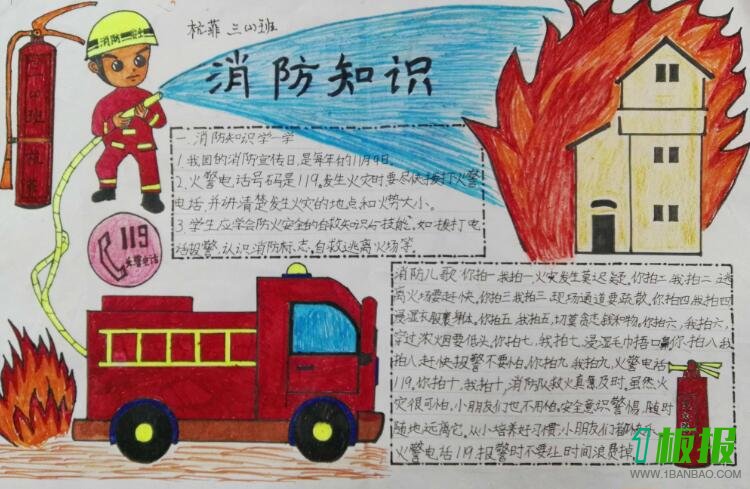 杭菲 三(4)班
消防知识
消防战士
三(4)班杭菲
一.消防知识学一学
1.我国的消防宣传日,是每年的11月9日。
2.火警电话号码是119。发生火灾时要尽快拨打火警
电话,并讲清楚发生火灾的地点和火势大小。
3.学生应学会防火安全的自救知识与技能。如拨打电
话报警,认识消防标志。自救逃离火场等。
119
火警电话
消防儿歌 你拍一我拍一,火灾发生莫迟疑。你拍二,我拍二,逃
离火场要赶快。你拍三我拍三,现场通道要疏散。你拍四我拍四
浸湿衣服裹身体。你拍五,我拍五,切莫贪恋钱和物。你拍六,我拍六,
穿过浓烟要低头。你拍七,我拍七,浸湿毛巾捂口鼻你拍八我
拍八赶快报警不要怕。你拍九,我拍九,火警电话
119。你拍十,我拍十,消防队救火真是及时。虽然火
灾很可怕,小朋友们也不用怕。安全意识警惕,随时
随地远离它。从小培养好习惯,小朋友们都快乐
火警电话119,报警时不要让时间浪费掉
1板报
WWW.1BANBAO.COM